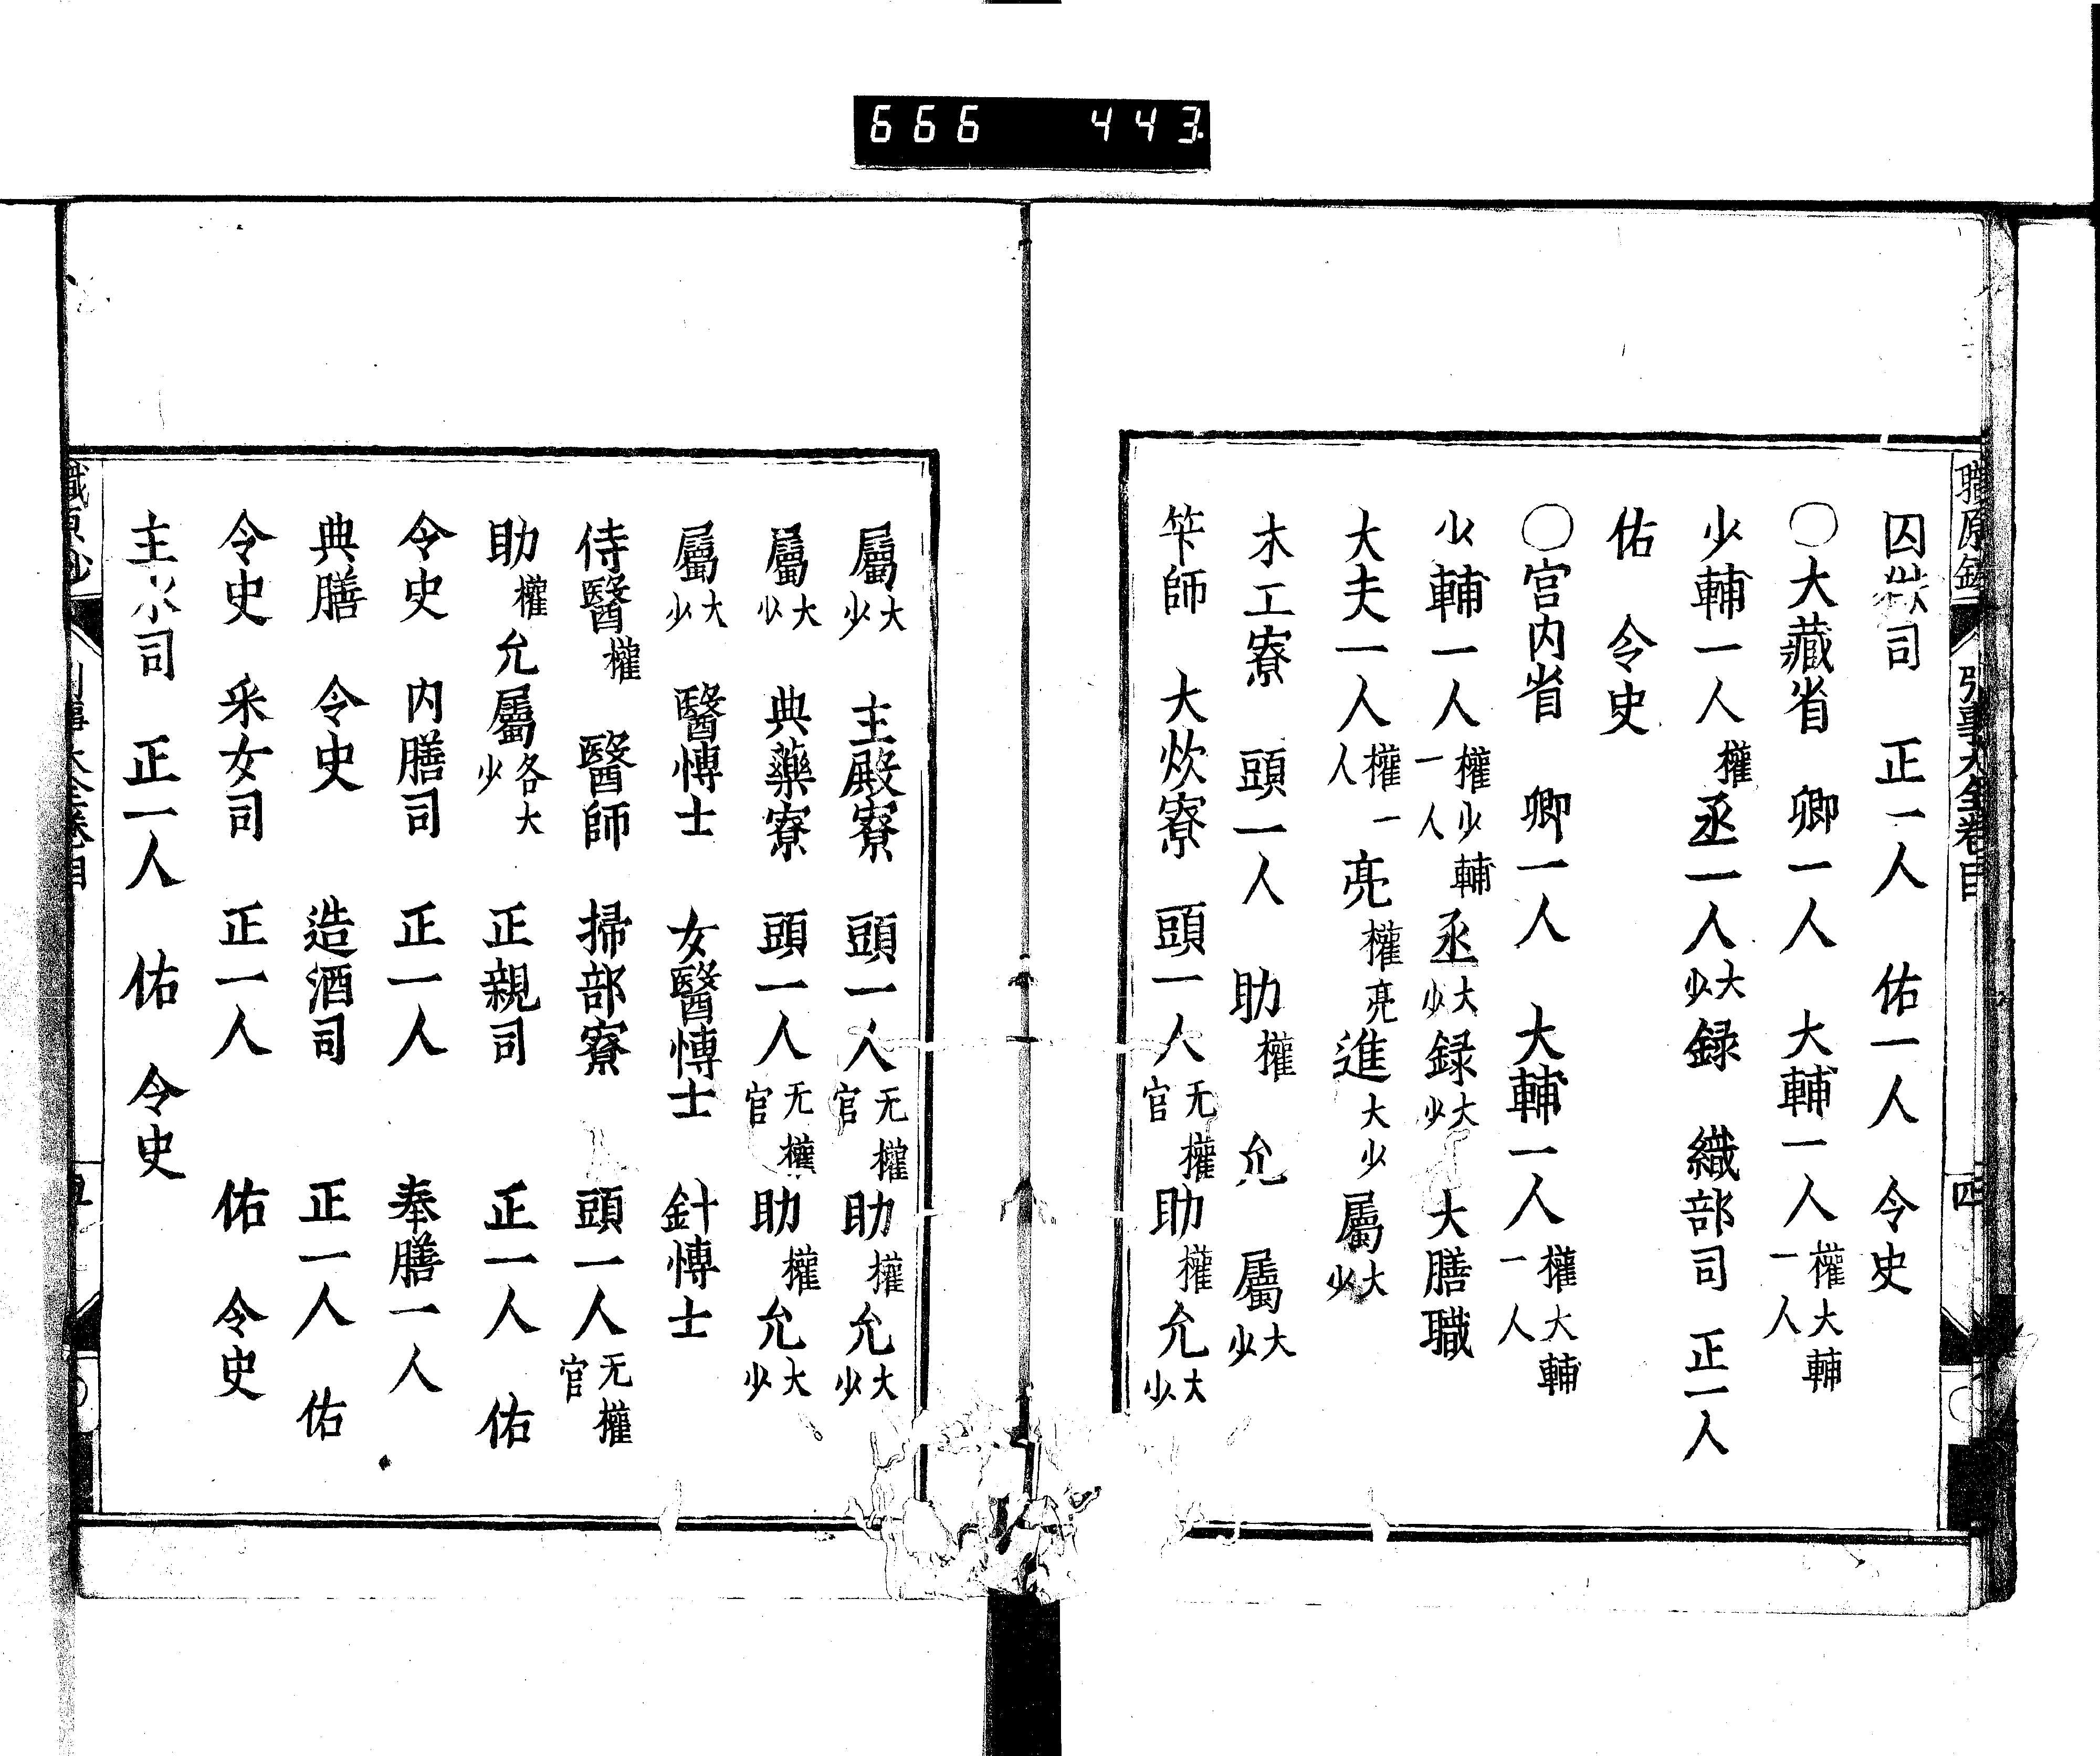 666 443
囚獄司 正一人 佑一人 令史
○大藏省 卿一人 大輔一人 權大輔一人
少輔一人 權 丞一人 大少 録 織部司 正一人
佑 令史
○宮内省 卿一人 大輔一人 權大輔一人
少輔一人 權少輔一人 丞 大少 録 大少 大膳職
大夫一人 權一人 亮 權亮 進 大少 屬 大少
木工寮 頭一人 助 權 允 屬 大少
笇師 大炊寮 頭一人 无權官 助 權 允 大少
屬 大少 主殿寮 頭一人 无權官 助 權 允 大少
屬 大少 典藥寮 頭一人 无權官 助 權 允 大少
屬 大少 醫博士 女醫博士 針博士
侍醫 權 醫師 掃部寮 頭一人 无權官
助 權 允屬 各大少 正親司 正一人 佑
令史 内膳司 正一人 奉膳一人
典膳 令史 造酒司 正一人 佑
令史 采女司 正一人 佑 令史
主水司 正一人 佑 令史
職原鈔 引事大全卷目 四